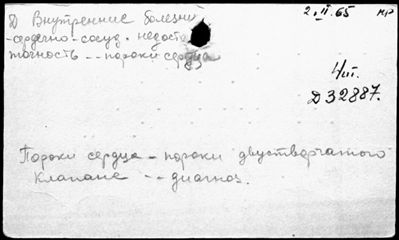 Д Внутренние болезни
2.II.65 кр
-сердечно-сосуд. недоста
точность -- пороки сердца
4/III.
Д32887.
Пороки сердца - пороки двустворчатого
клапана -- диагноз.